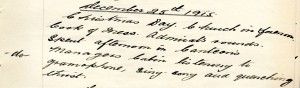 December 25th 1915
Christmas Day. Church in forenoon
Cook of Mess. Admirals rounds.
-do- Spent afternoon in Canteen
Managers Cabin listening to
gramophone, sing song and quenching
thirst.